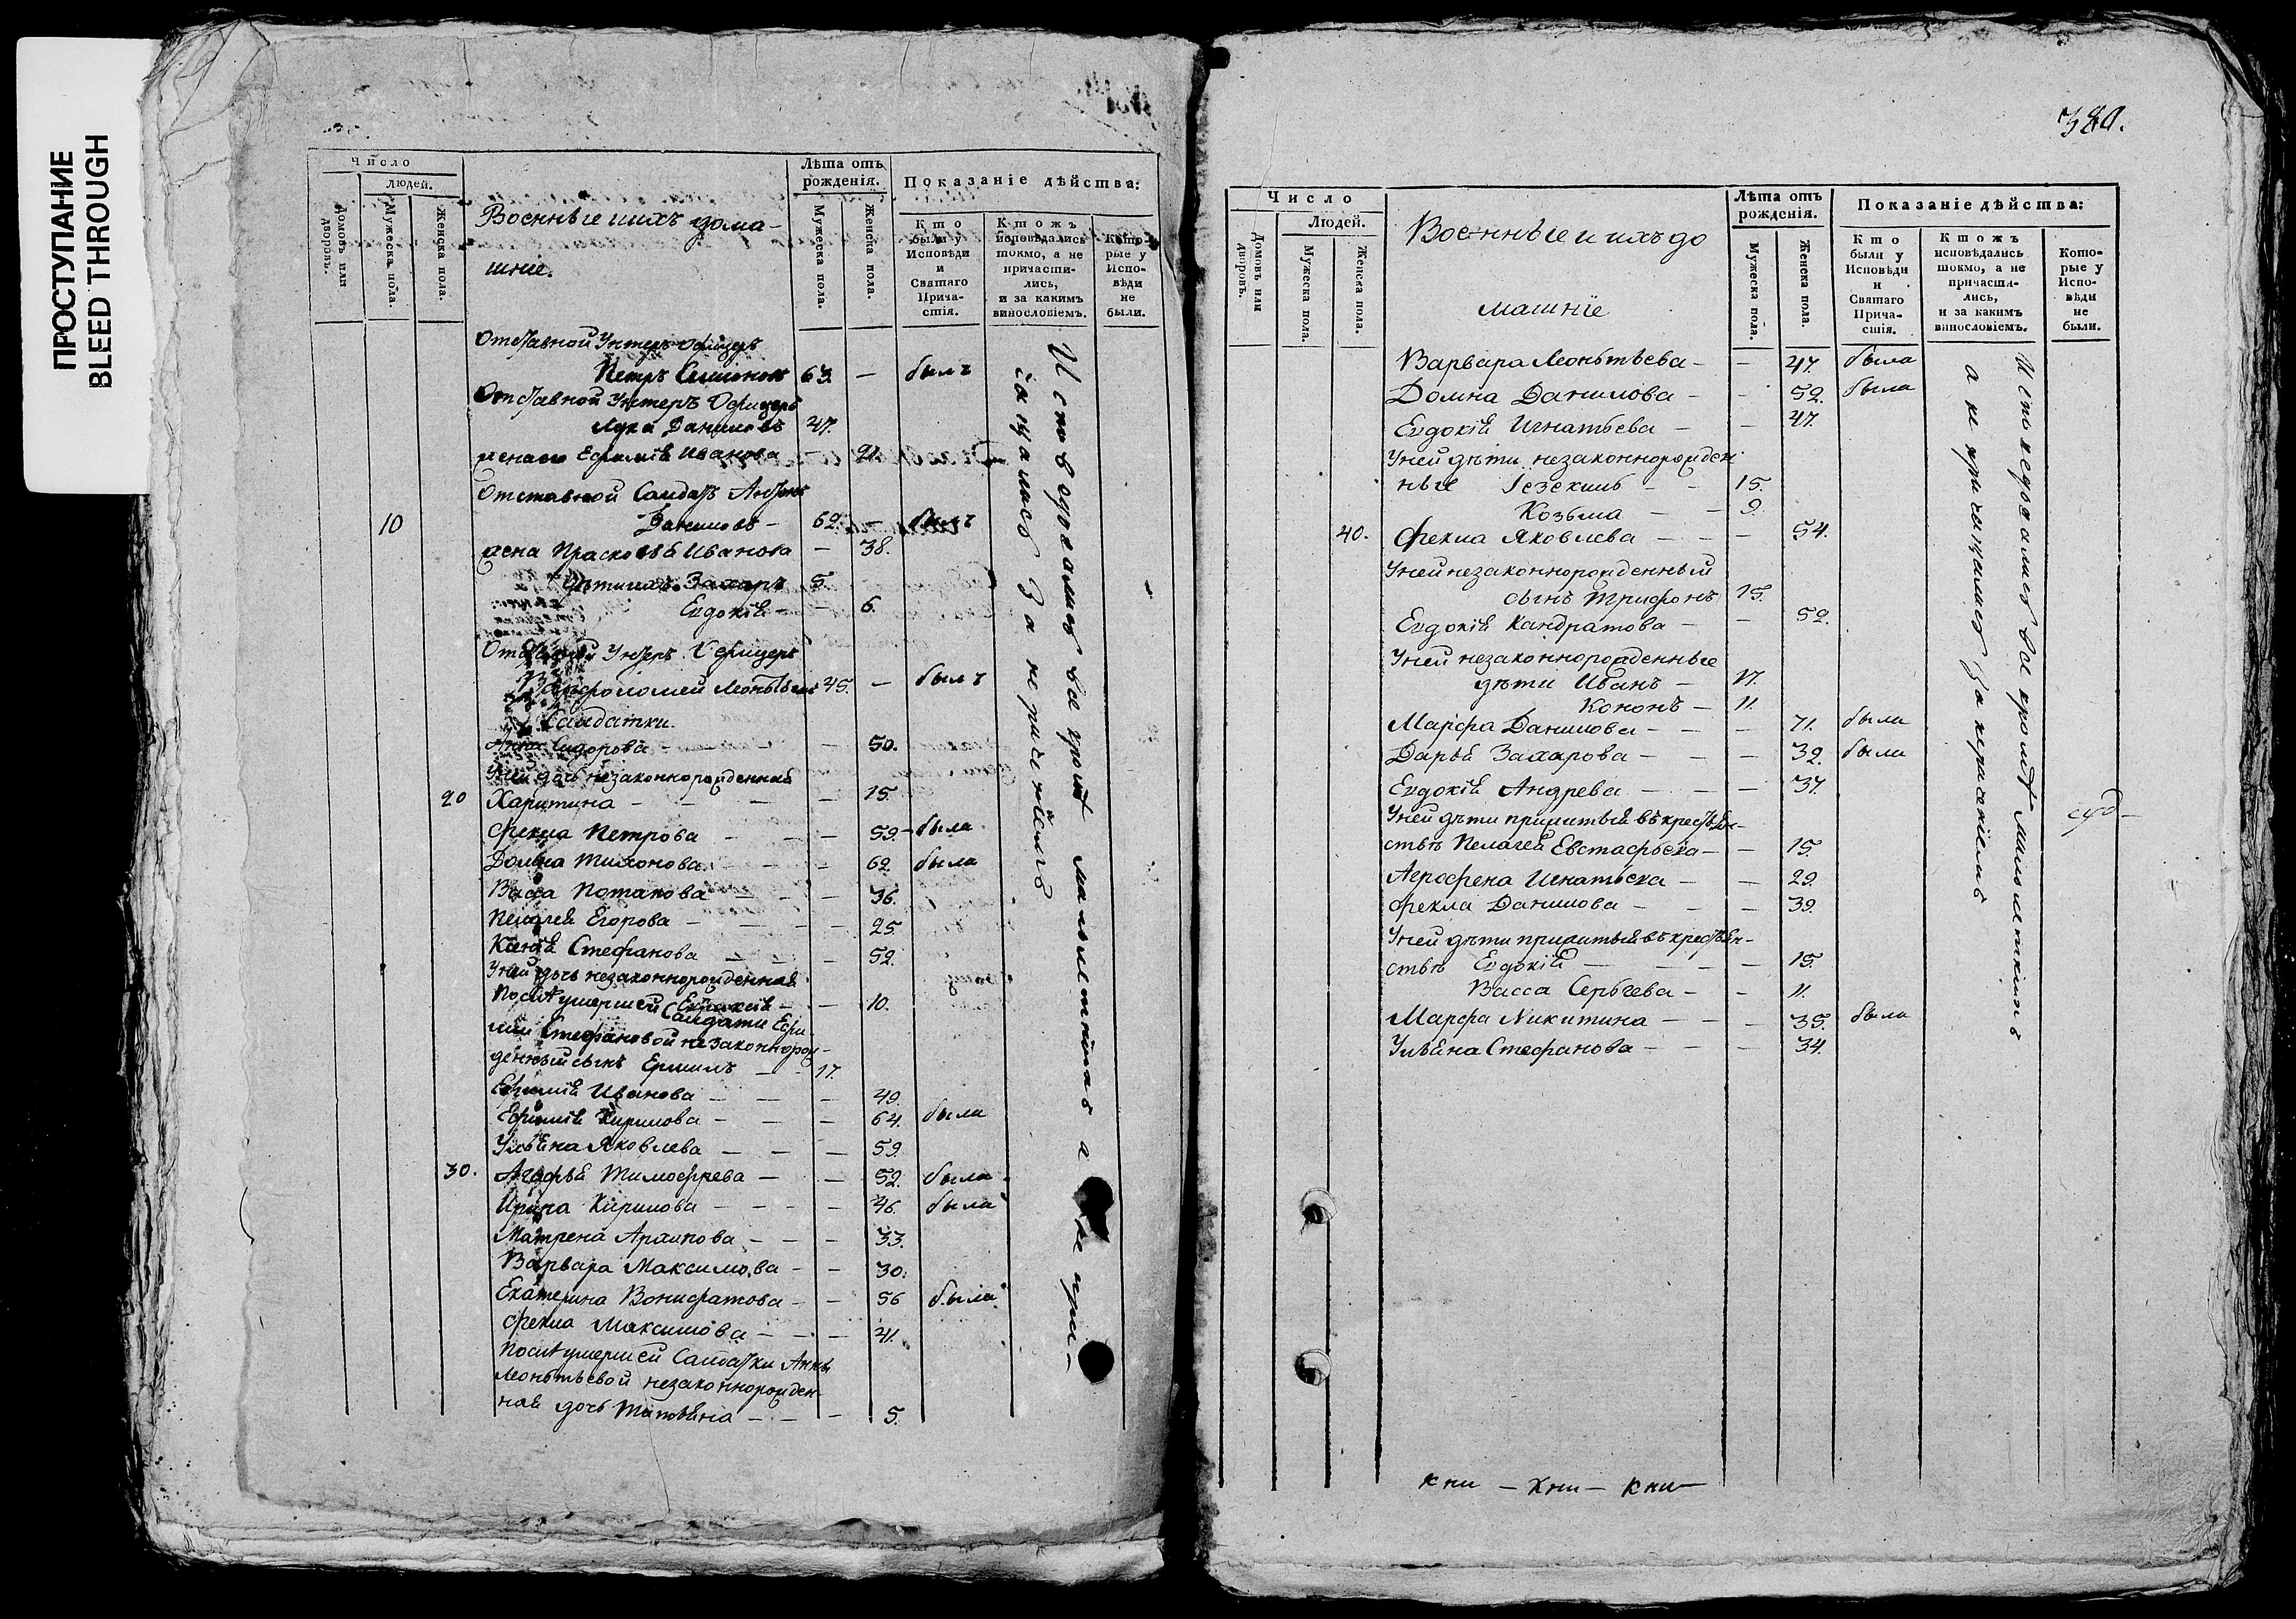 ПРОСТУПАНИЕ
BLEED THROUGH
Число
людей.
Домовъ или дворовъ.
Мужеска пола.
Женска пола.
Военные и ихъ дома-
шніе.
Лѣта отъ рожденія.
Мужеска пола.
Женска пола.
Показаніе дѣйства:
Кто были у Исповѣди и Святаго Причастія.
Ктожъ исповѣдались токмо, а не причастились, и за какимъ винословіемъ.
Которые у Исповѣди не были.
Отставной Унтеръ Офицеръ
Петръ Симионовъ 63. — былъ
Отставной Унтеръ Офицеръ
Лука Даниловъ 47.
жена его Ефимія Иванова — 21.
Отставной Солдатъ
10 Даниловъ — 62. — былъ
жена Прасковья Иванова — 38.
дѣти ихъ Захаръ 5.
Евдокія — — 6.
Отставной Унтеръ Офицеръ
Варфоломей Леонтьевъ 45. — былъ
Солдатки.
Анна Сидорова — — — 50.
У ней дочь незаконнорожденная
20 Харитина — — — 15.
Фекла Петрова — — — 59 — была
Домна Тихонова — — 62 была
Васса Потапова — — 36.
Пелагея Егорова — — — 25.
Ксенія Стефанова — — — 52.
У ней дочь незаконнорожденная
— — 10.
Послѣ умершей Солдатки Ефи-
міи Стефановой незаконнорож-
денный сынъ Ермилъ — — 17.
Ефимія Иванова — — — 49.
Ефимія Кирилова — — 64. была
Ульяна Яковлева — — — 59.
30. Агафья Тимофеева — — 52. была
Ирина Кирилова — — — 46. была
Матрена Архипова — — — 33.
Варвара Максимова — — 30.
Екатерина Вонифатова — — 56 была
Фекла Максимова — — — 41.
Послѣ умершей Солдатки Анны
Леонтьевой незаконнорожден-
ная дочь Татьяна — — — 5.
Исповѣдовались всѣ кромѣ малолѣтнихъ а не при-
чащались за нерачѣніемъ
380.
Число
Людей.
Домовъ или дворовъ.
Мужеска пола.
Женска пола.
Военные и ихъ до
машніе
Лѣта отъ рожденія.
Мужеска пола.
Женска пола.
Показаніе дѣйства:
Кто были у Исповѣди и Святаго Причастія.
Ктожъ исповѣдались токмо, а не причастились, и за какимъ винословіемъ.
Которые у Исповѣди не были.
Варвара Леонтьева — — 47. была
Домна Данилова — — 52. была
Евдокія Игнатьева — — 47.
У ней дѣти незаконнорожден
ные Іезекиль — — 15.
Козьма — — 9.
40. Фекла Яковлева — — — 54.
У ней незаконнорожденный
сынъ Трифонъ 15.
Евдокія Кандратова — — 52.
У ней незаконнорожденные
дѣти Иванъ — 17.
Кононъ — 11.
Марфа Данилова — — — 71. была
Дарья Захарова — — — 32. была
Евдокія Андрева — — — 37.
У ней дѣти прижитыя въ крестьян-
ствѣ Пелагея Евстафьева — — 15.
Агрофена Игнатьева — — 29.
Фекла Данилова — — — 39.
У ней дѣти прижитыя въ крестьян-
ствѣ Евдокія — — — 15.
Васса Сергѣева — — 11.
Марфа Никитина — — — 35. была
Ульяна Стефанова — — — 34.
Исповѣдовались всѣ кромѣ малолѣтнихъ
а не причащались за нерачѣніемъ
кни — кни — кни —